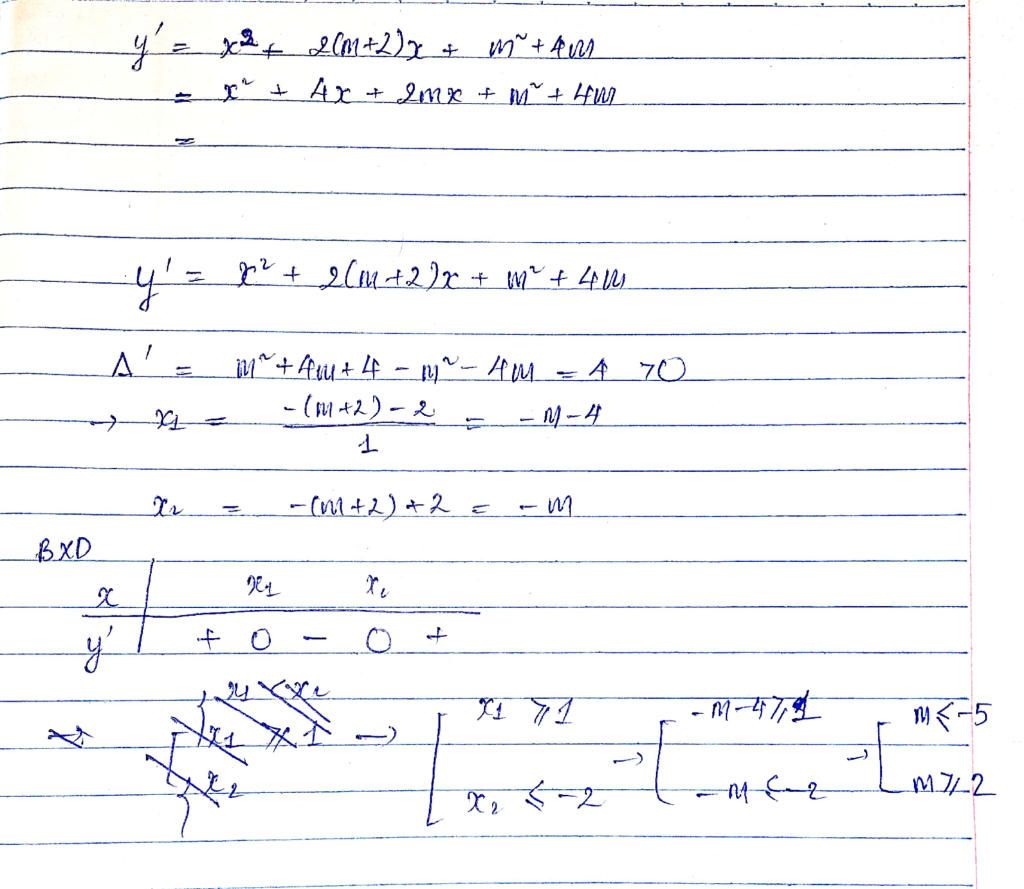 y' = x² + 2(m+2)x + m² + 4m
= x² + 4x + 2mx + m² + 4m
=
y' = x² + 2(m+2)x + m² + 4m
Δ' = m² + 4m + 4 - m² - 4m = 4 > 0
→ x₁ = (-(m+2) - 2)/1 = -m-4
x₂ = -(m+2) + 2 = -m
BXD
x | x₁ x₂
y' | + 0 - 0 +
→ [ x₁ ≥ 1 → [ -m-4 ≥ 1 → [ m ≤ -5
x₂ ≤ -2 -m ≤ -2 m ≥ 2